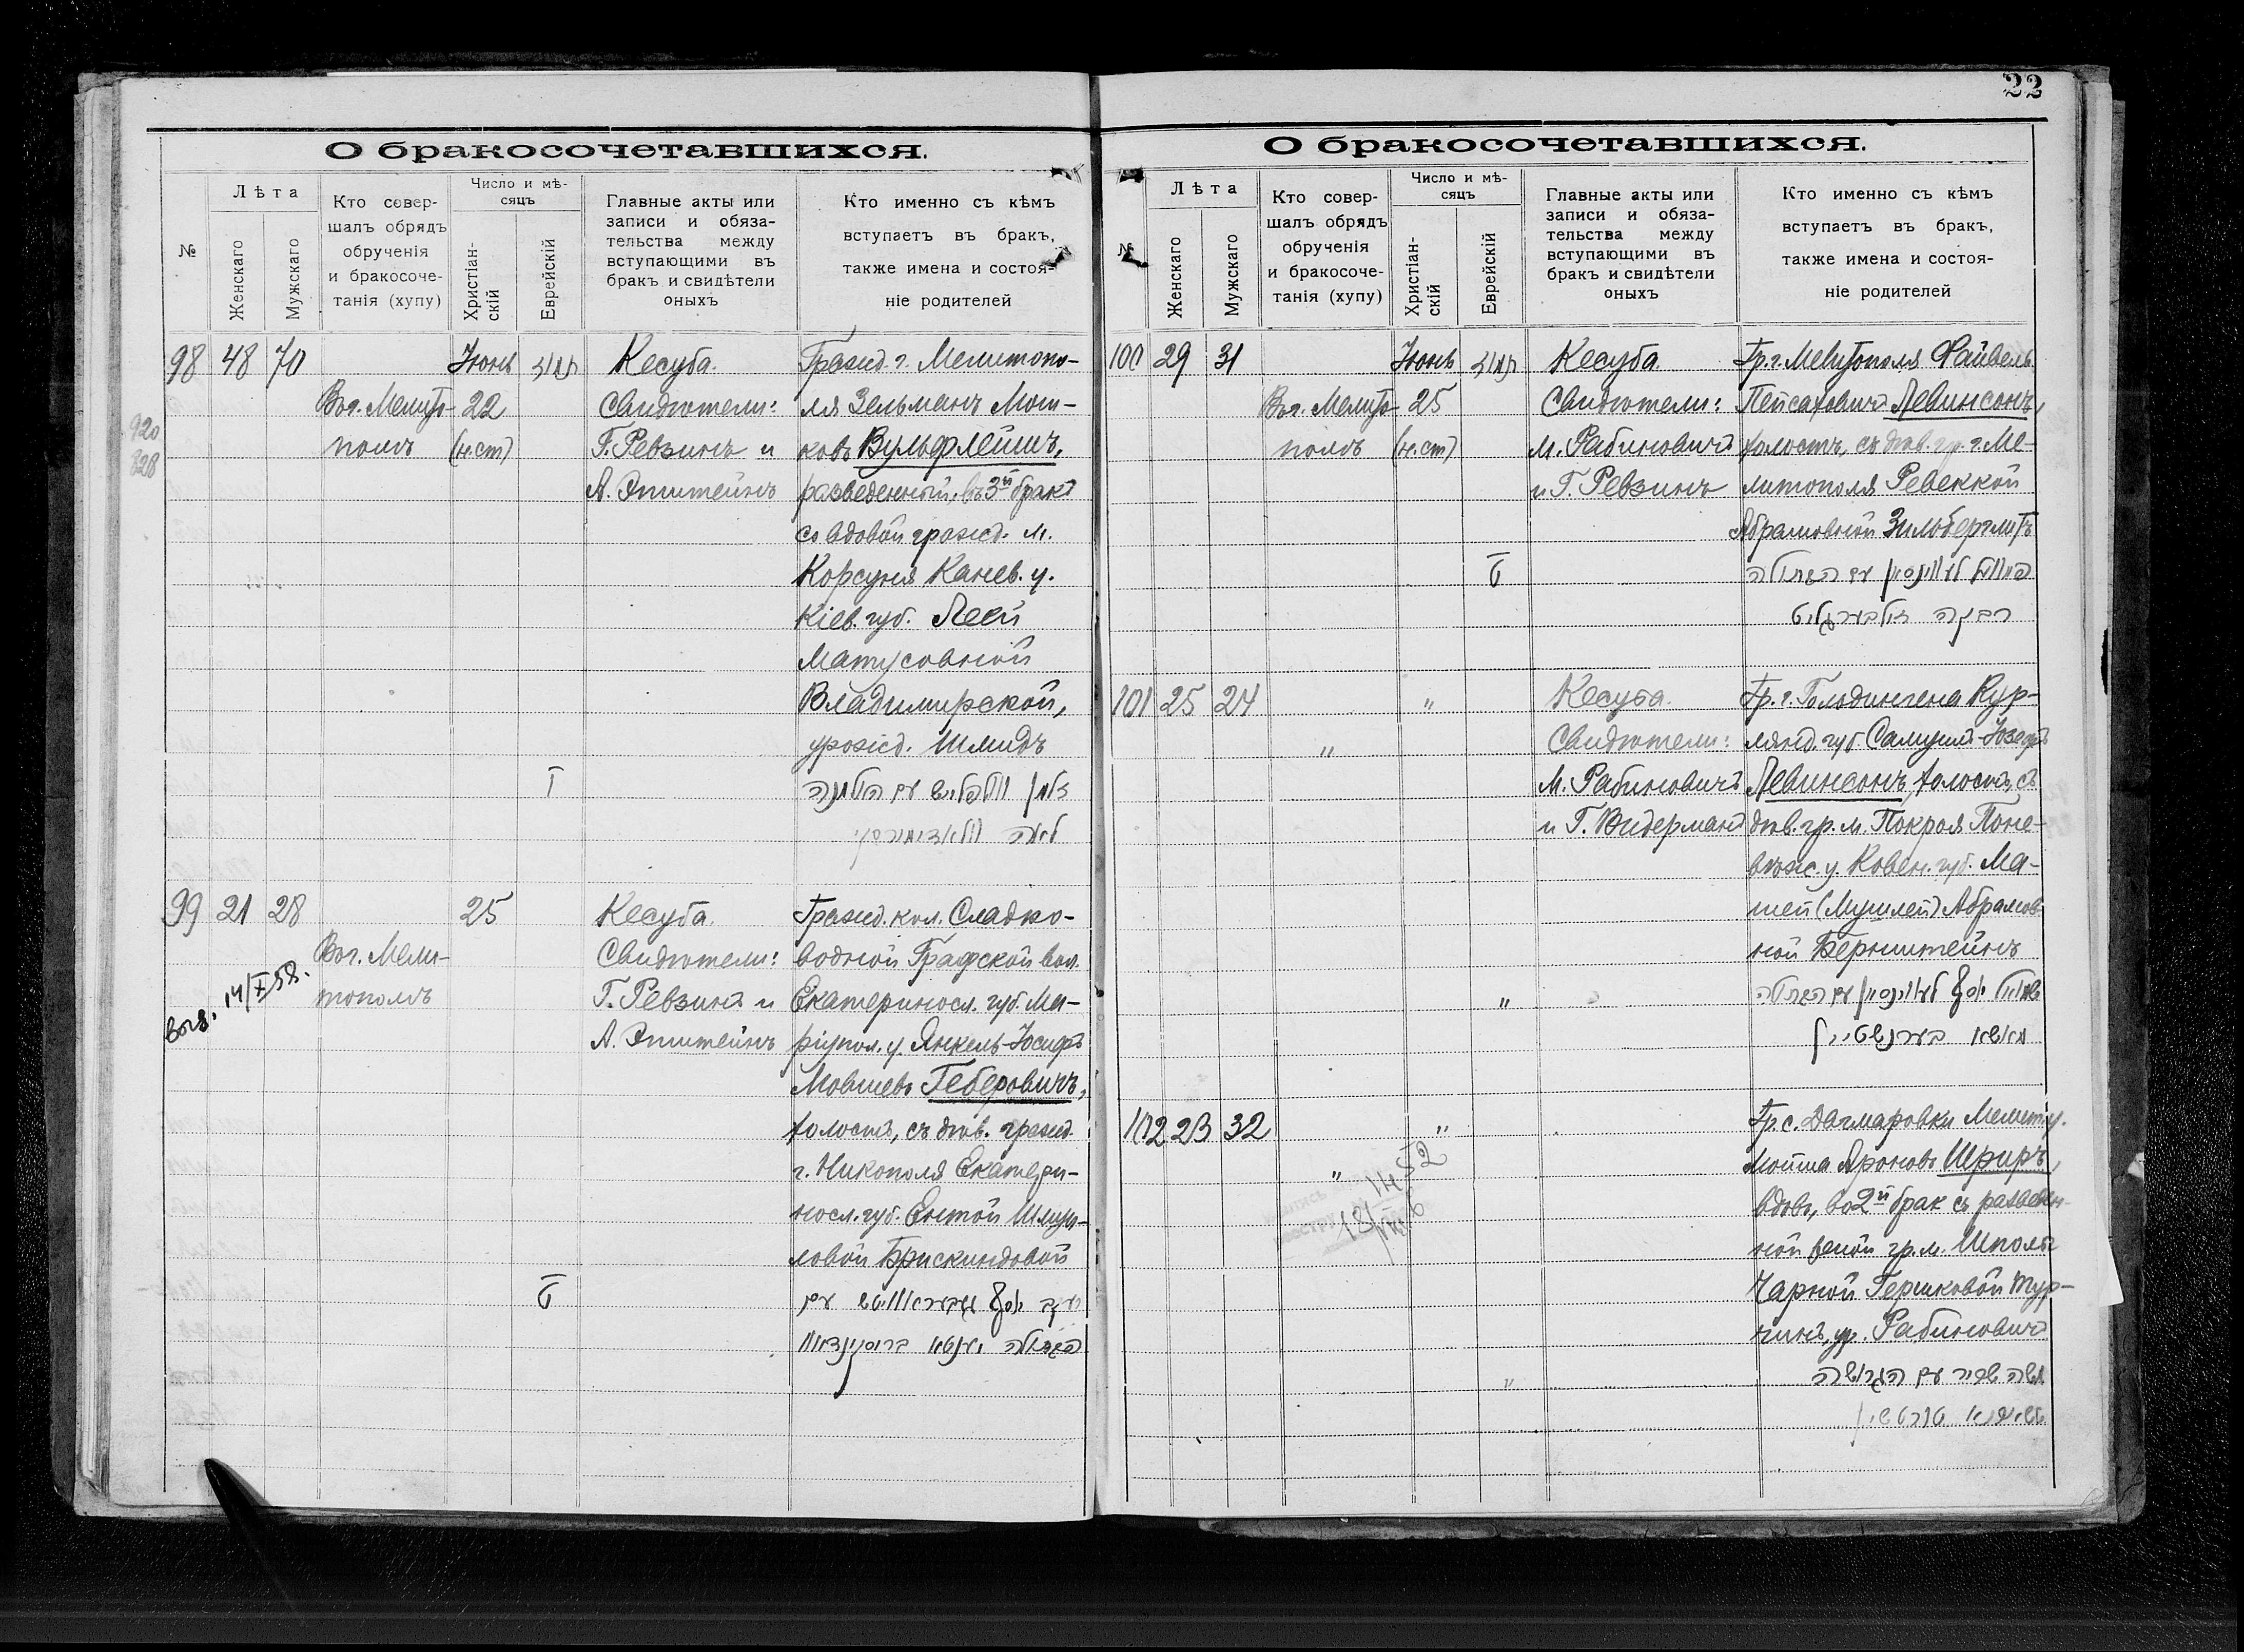 22
О бракосочетавшихся.
№
Лѣта
Женскаго
Мужскаго
Кто совер-
шалъ обрядъ
обрученія
и бракосоче-
танія (хупу)
Число и мѣ-
сяцъ
Христіан-
скій
Еврейскій
Главные акты или
записи и обяза-
тельства между
вступающими въ
бракъ и свидѣтели
оныхъ
Кто именно съ кѣмъ
вступаетъ въ бракъ,
также имена и состоя-
ніе родителей
98 48 70
Въ г. Мелито-
полѣ
Іюнь
22
(н.ст)
Кесуба.
Свидѣтели:
Г. Ревзинъ и
А. Эпштейнъ
Гражд. г. Мелитопо-
ля Зельманъ Мош-
ковъ Вульфлейшъ,
разведенный, въ 3й бракъ
со вдовой гражд. м.
Корсуня Канев. у.
Кіев. губ. Леей
Матусовной
Владимирской,
урожд. Шмидъ
זלמן וואלפלייש עם האלמנה
לאה וולאדימירסקי
920
828
99 21 28
Въ г. Мели-
тополѣ
25
Кесуба.
Свидѣтели:
Г. Ревзинъ и
А. Эпштейнъ
Гражд. кол. Сладко-
водной Графской вол.
Екатериносл. губ. Ма-
ріупол. у. Янкель-Іосифъ
Мовшевъ Геберовичъ,
холостъ, съ дѣв. гражд.
г. Никополя Екатери-
носл. губ. Ентой Шмуй-
ловой Брискиндовой
יעקב יוסף געבעראוויטש עם
הבתולה יענטא בריסקינדאוו
выд. 14/X 58.
О бракосочетавшихся.
№
Лѣта
Женскаго
Мужскаго
Кто совер-
шалъ обрядъ
обрученія
и бракосоче-
танія (хупу)
Число и мѣ-
сяцъ
Христіан-
скій
Еврейскій
Главные акты или
записи и обяза-
тельства между
вступающими въ
бракъ и свидѣтели
оныхъ
Кто именно съ кѣмъ
вступаетъ въ бракъ,
также имена и состоя-
ніе родителей
100 29 31
Въ г. Мелито-
полѣ
Іюнь
25
(н.ст)
Кесуба.
Свидѣтели:
М. Рабиновичъ
и Г. Ревзинъ
Гр. г. Мелитополя Файвель
Пейсаховичъ Левинсонъ,
холостъ, съ дѣв. гр. г. Ме-
литополя Ревеккой
Абрамовной Зильберглитъ
פייוויל לעווינסאן עם הבתולה
רבקה זילבערגליט
101 25 24
"
"
Кесуба.
Свидѣтели:
М. Рабиновичъ
и Г. Видерманъ
Гр. г. Гольдингена Кур-
лянд. губ Самуилъ-Іозефъ
Левинсонъ, холостъ, съ
дѣв. гр. м. Покроя Поне-
вѣж. у. Ковен. губ. Ма-
шей (Мушлей) Абрамов-
ной Бернштейнъ
"
שמואל יוסף לעווינסאן עם הבתולה
מאשא בערנשטיין
102 23 32
"
"
Гр. с. Дагмаровки Мелит. у.
Мойша Ароновъ Шфиръ,
вдовъ, во 2й брак съ разведен-
ной женой гр. м. Шполы
Чарной Гершковой Тур-
чинъ, ур. Рабиновичъ
"
משה שפיר עם הגרושה
טשארנא טורטשין